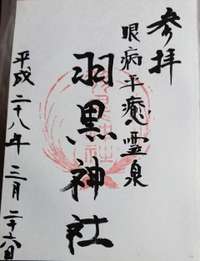 参拝
眼病平癒霊泉
羽黒神社
平成二十八年三月二十六日